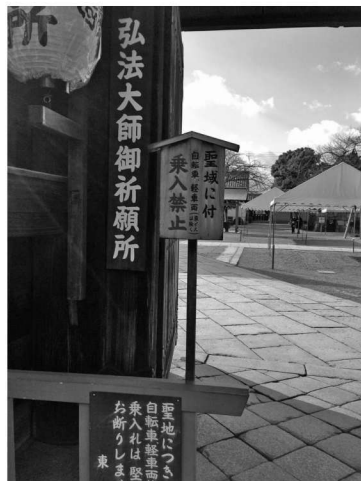 所
弘法大師御祈願所
聖域に付
自転車、軽車両
乗入禁止
聖地につき
自転車軽車両
乗入れは堅
お断りしま
東